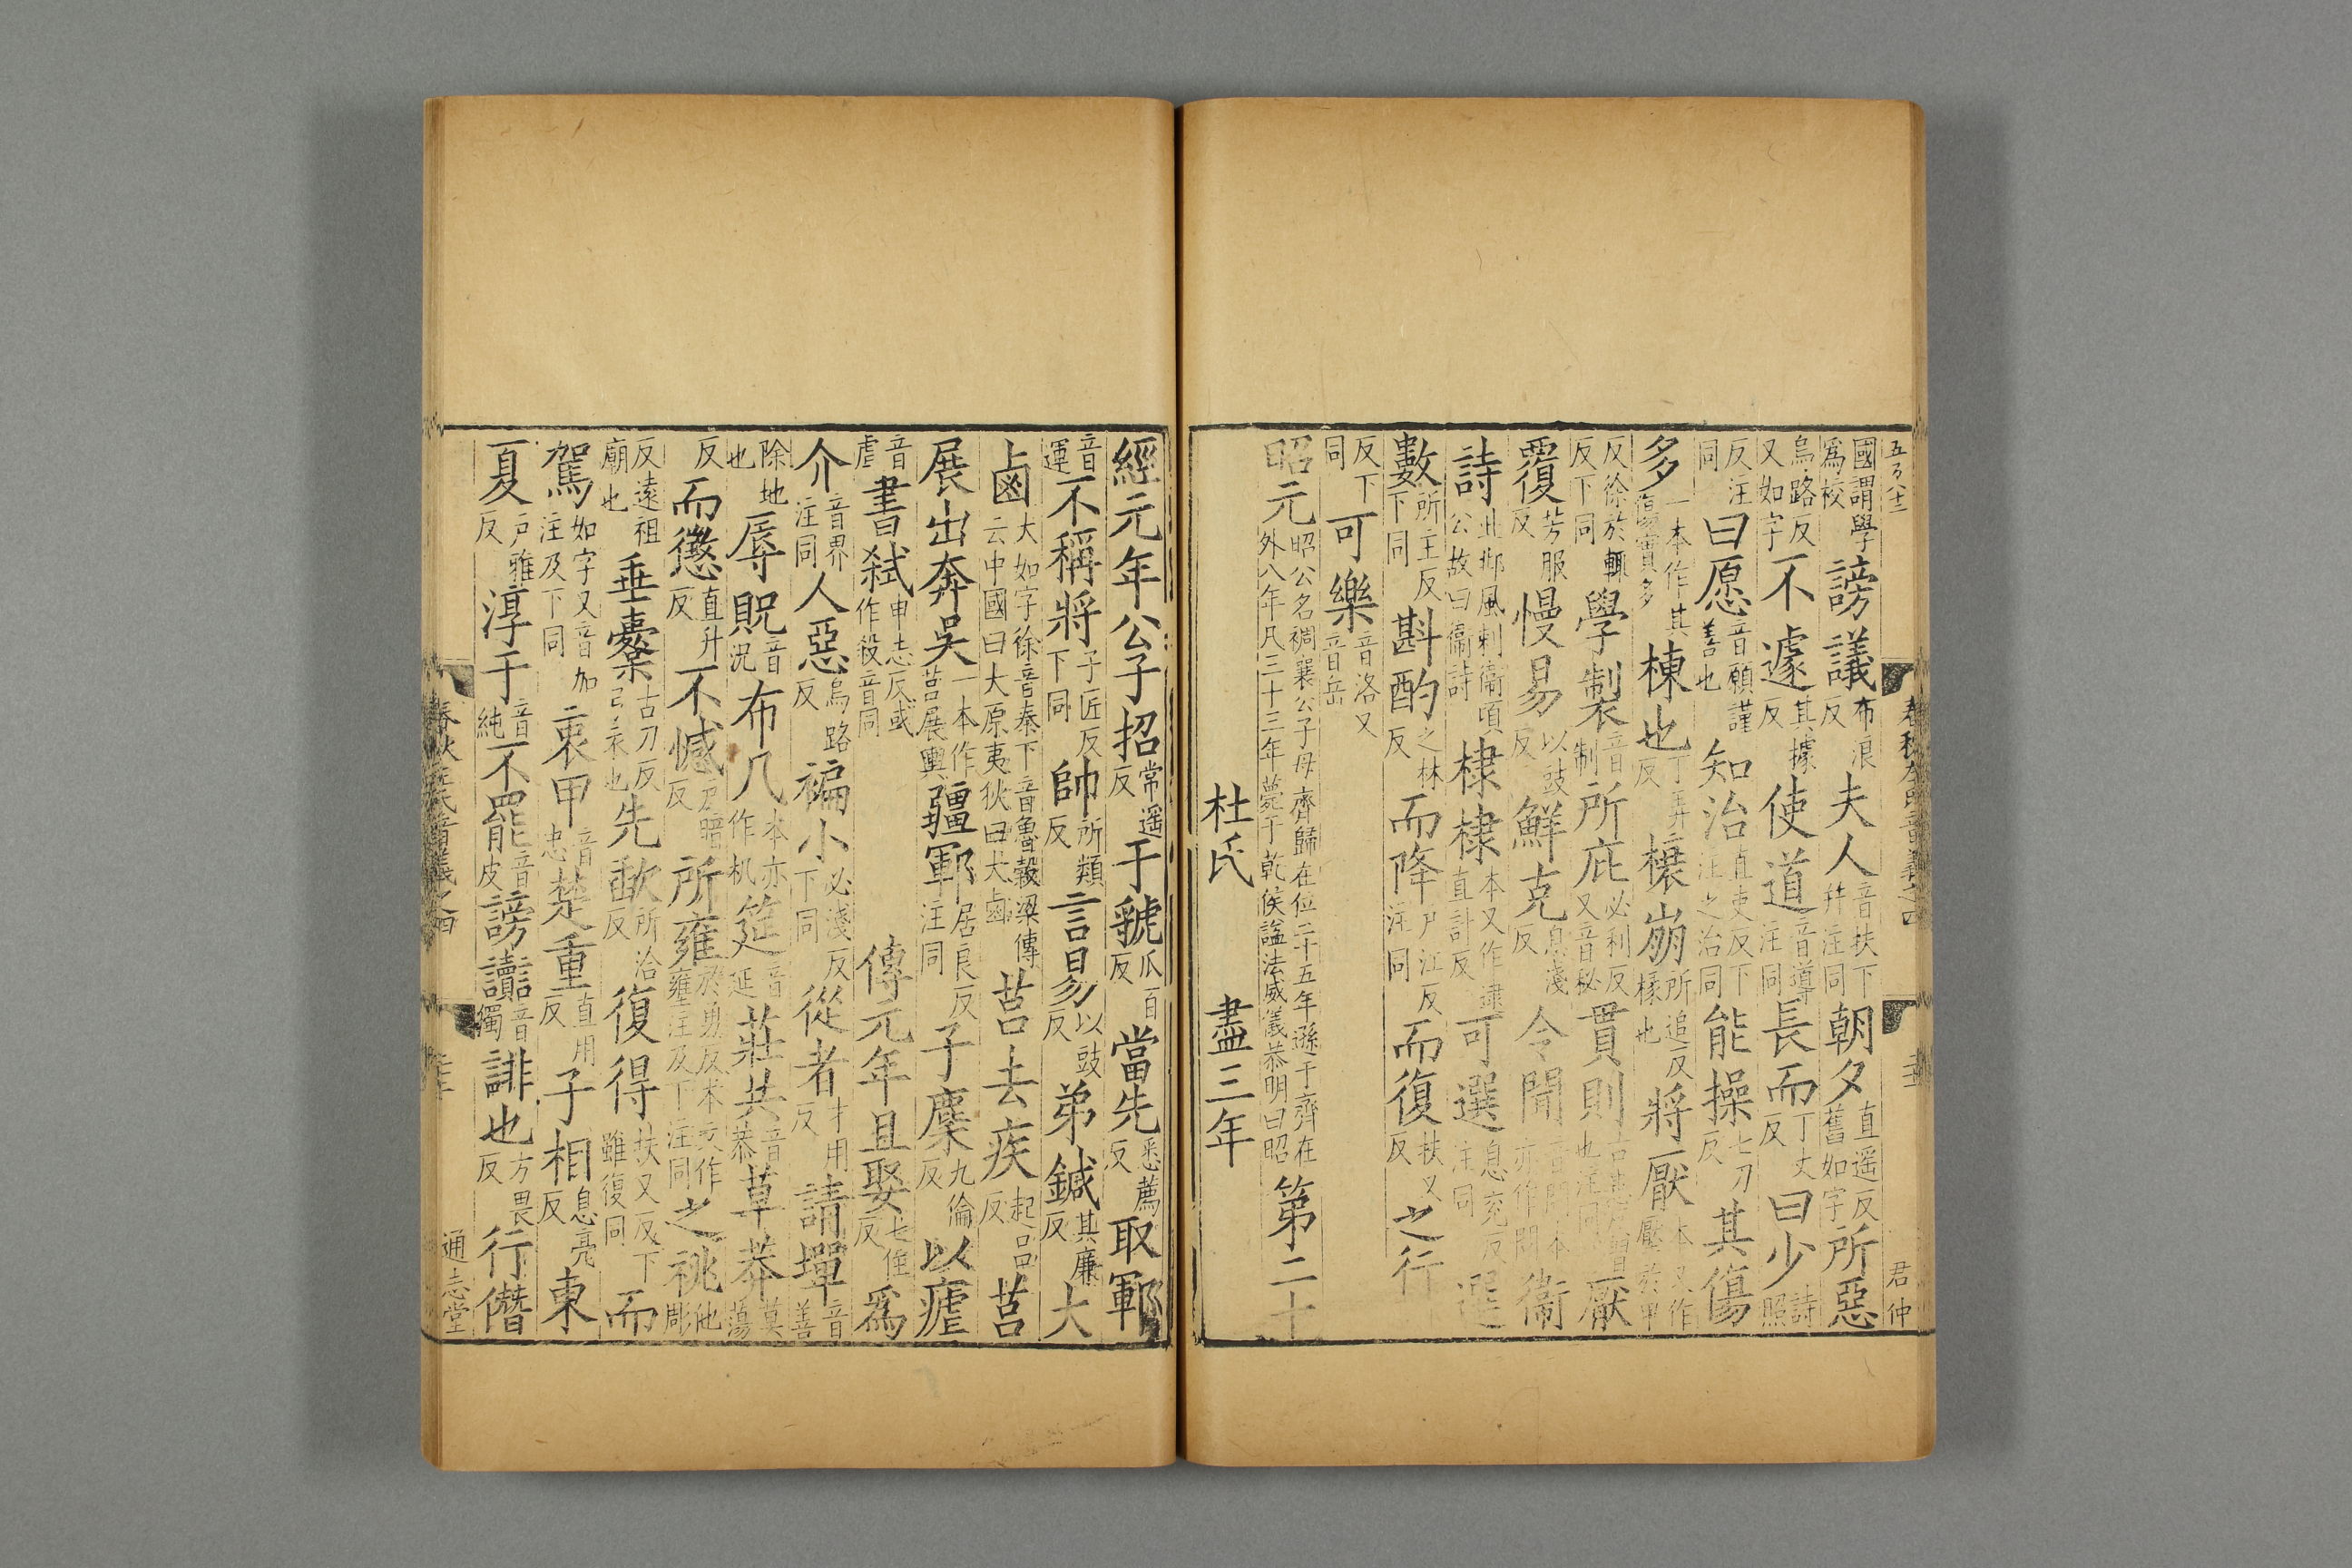 國謂學爲校謗議布浪反夫人音扶下并注同朝夕直遥反舊如字所惡
烏路反又如字不遽其據反使道音導注同長而丁丈反曰少詩照
反注同曰愿音願謹善也知治直吏反下注之治同能操七刀反其傷
多一本作其傷實多棟也丁弄反榱崩所追反椽也將厭本又作壓於甲
反徐於輒反下同學製音制所庇必利反又音祕貫則古患反厭
覆芳服反慢易以豉反鮮克息淺反令聞音問本亦作問衞
詩此邶風刺衞頃公故曰衞詩棣棣本又作逮直計反可選息兖反注同選
數所主反下同斟酌之林反而降户江反注同而復扶又反之行
反下同可樂音洛又音岳
昭元昭公名裯襄公子母齊歸在位二十五年遜于齊在外八年凡三十三年薨于乾侯諡法威儀恭明曰昭第二十
杜氏 盡三年
五百八十二
春秋左氏音義之四
君仲
經元年公子招常遥反于虢瓜百反當先悉薦反取鄆
音運不稱將子匠反下同帥所類反言易以豉反弟鍼其廉反大
鹵大如字徐音泰下音魯穀梁傳云中國曰大原夷狄曰大鹵莒去疾起吕反莒
展出奔吳一本作莒展輿疆鄆居良反注同子麇九倫反以瘧
音虐書弒申志反或作殺音同傳元年且娶七住反爲
介音界注同人惡烏路反褊小必淺反下同從者才用反請墠音善
除地也辱貺音況布几本亦作机筵音延莊共音恭草莽莫蕩
反而懲直升反不憾户暗反所雍於勇反本又作壅注及下注同之祧他彫
反遠祖廟也垂櫜古刀反弓衣也先歃所洽反復得扶又反下雖復同而
駕如字又音加注及下同衷甲音忠楚重直用反子相息亮反東
夏户雅反淳于音純不罷音皮謗讟音獨誹也方畏反行僭
春秋左氏音義之四
通志堂